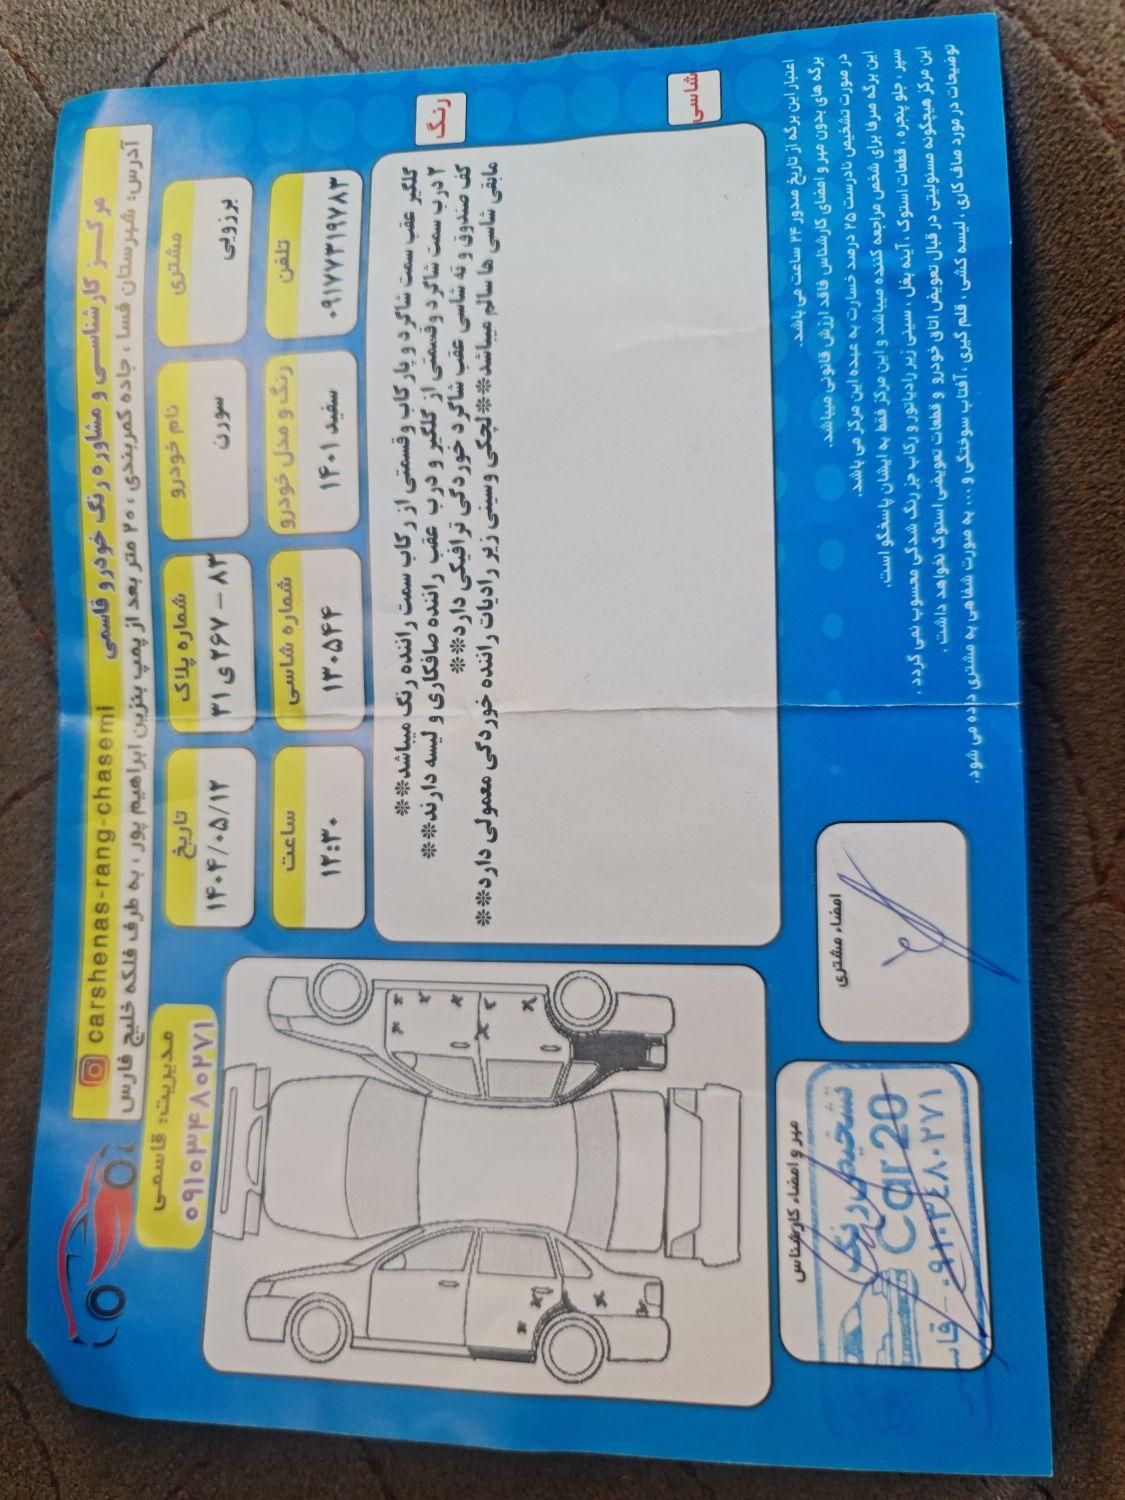 مرکز کارشناسی و مشاوره رنگ خودرو قاسمی
carshenas-rang-chasemi
آدرس: شهرستان فسا ، جاده کمربندی ، ۲۰ متر بعد از پمپ بنزین ابراهیم پور ، به طرف فلکه خلیج فارس
مدیریت: قاسمی
۰۹۱۰۳۴۸۰۲۷۱
مشتری
برزویی
نام خودرو
سورن
شماره پلاک
۳۱ ی ۲۶۷ – ۸۳
تاریخ
۱۴۰۴/۰۵/۱۲
تلفن
۰۹۱۷۷۳۱۹۷۸۳
رنگ و مدل خودرو
سفید ۱۴۰۱
شماره شاسی
۱۳۰۵۴۴
ساعت
۱۲:۳۰
رنگ
گلگیر عقب سمت شاگرد و پار کاب وقسمتی از رکاب سمت راننده رنگ میباشد**
۲ درب سمت شاگرد وقسمتی از گلگیر و درب عقب راننده صافکاری و لیسه دارند**
کف صندوق و ته شاسی عقب شاگرد خوردگی ترافیکی دارد**
مابقی شاسی ها سالم میباشد**لچکی وسینی زیر رادیات راننده خوردگی معمولی دارد**
شاسی
اعتبار این برگه از تاریخ صدور ۲۴ ساعت می باشد.
برگه های بدون مهر و امضای کارشناس فاقد ارزش قانونی میباشد.
در صورت تشخیص نادرست ۲۵ درصد خسارت به عهده این مرکز می باشد.
این برگه صرفا برای شخص مراجعه کننده میباشد و این مرکز فقط به ایشان پاسخگو است.
سپر ، جلو پنجره ، قطعات استوک ، آینه بغل ، سینی زیر رادیاتور و رکاب جز رنگ شدگی محسوب نمی گردد .
این مرکز هیچگونه مسئولیتی در قبال تعویض اتاق خودرو و قطعات تعویضی استوک نخواهد داشت .
توضیحات در مورد صاف کاری ، لیسه کشی ، قلم گیری ، آفتاب سوختگی و ... به صورت شفاهی به مشتری داده می شود.
امضاء مشتری
مهر و امضاء کارشناس
تشخیص رنگ
Car 20
۰۹۱۰۳۴۸۰۲۷۱